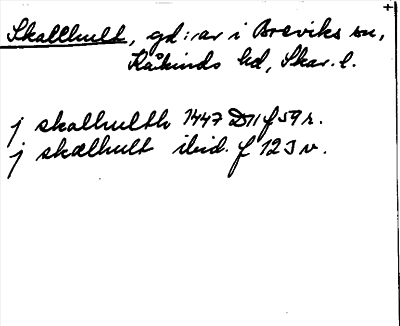 +
Skallhult, gd:ar i Breviks sn,
Kåkinds hd, Skar. l.
j skalhulth 1447 D11 f 59 r.
j skalhult ibid. f 123 v.